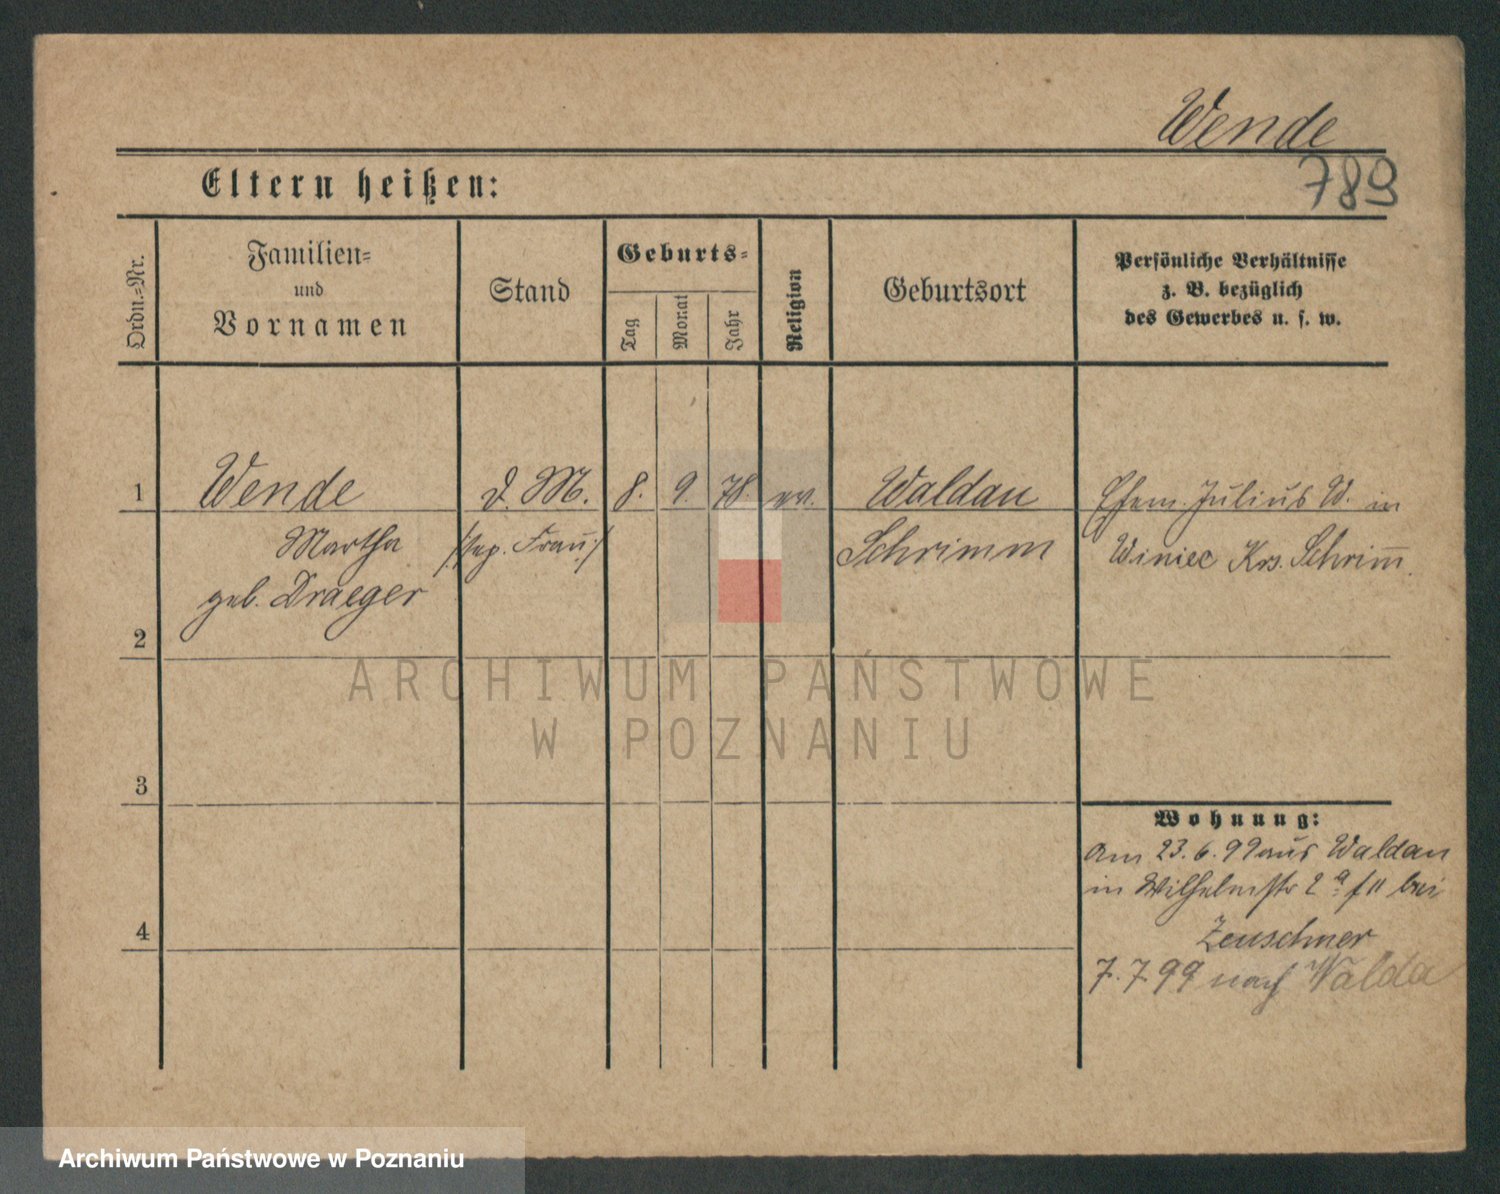 Wende
789
Eltern heißen:
Ordn.-Nr.
Familien-
und
Vornamen
Stand
Geburts-
Tag
Monat
Jahr
Religion
Geburtsort
Persönliche Verhältnisse
z. B. bezüglich
des Gewerbes u. s. w.
1
Wende
d. M.
8.
9.
78.
ev.
Waldau
Ehem. Julius W. in
Martha
/sep. Frau/
Schrimm
Winiec Krs. Schrim̄
geb. Draeger
2
3
Wohnung:
Am 23.6.99 aus Waldau
in Wilhelmstr 2 a bei
Zeuschner
4
7.7.99 nach Walda
ARCHIWUM PAŃSTWOWE
W POZNANIU
Archiwum Państwowe w Poznaniu